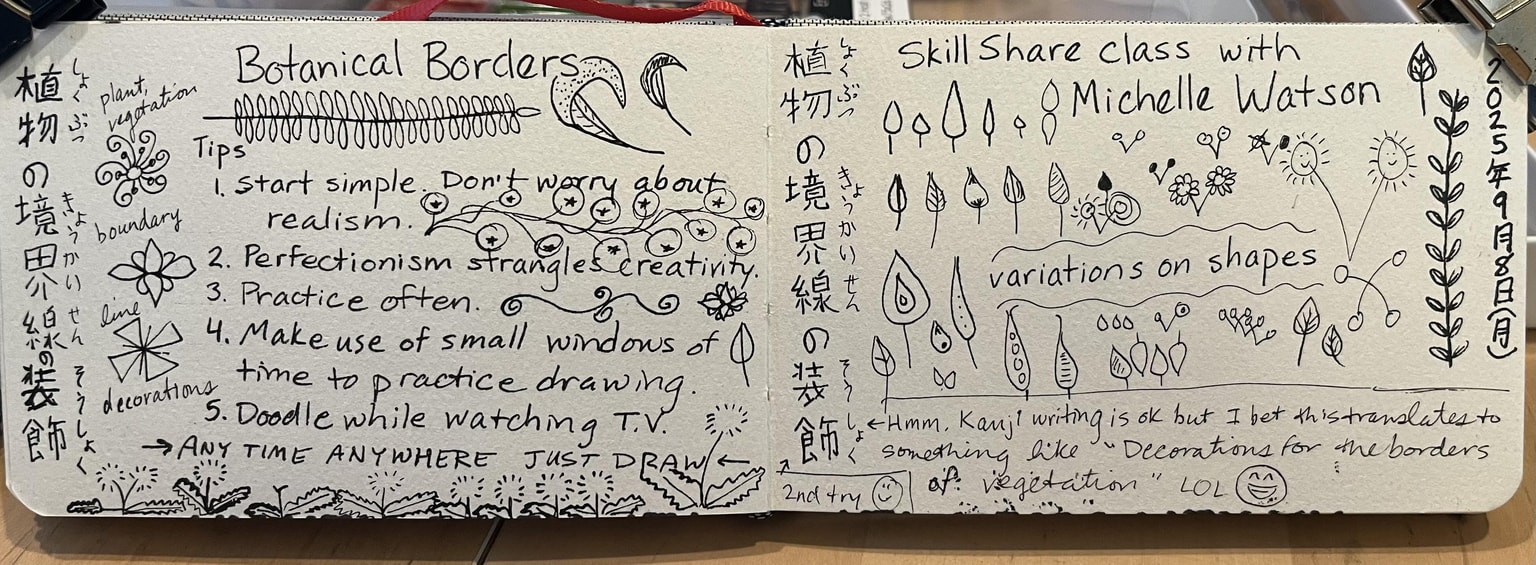 植物の境界線の装飾
しょくぶつ
きょうかいせん
そうしょく
plant,
vegetation
boundary
line
decorations
Botanical Borders
Tips
1. Start simple. Don't worry about
realism.
2. Perfectionism strangles creativity.
3. Practice often.
4. Make use of small windows of
time to practice drawing.
5. Doodle while watching T.V.
→ ANY TIME ANYWHERE JUST DRAW ←
植物の境界線の装飾
しょくぶつ
きょうかいせん
そうしょく
2nd try
SkillShare class with
Michelle Watson
variations on shapes
← Hmm. Kanji writing is ok but I bet this translates to
something like "Decorations for the borders
of vegetation" LOL
2025年9月8日(月)